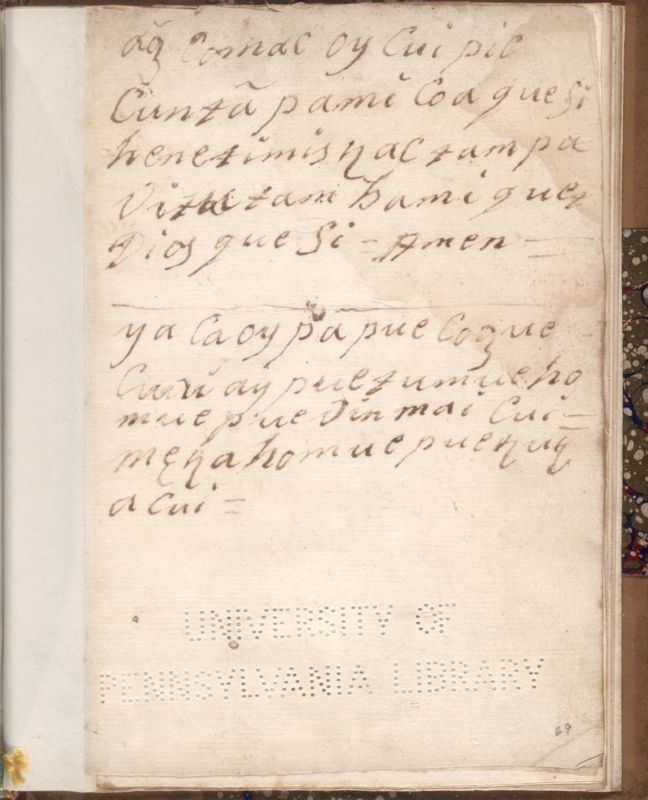 Comac oy Cui pic
Cuntā pamī Coa que Si
henetimis ɥac tampa
Vi tam hami quet
Dios que Si = Amen =
ya Ca oy pā pue Coʒue
ay puetumue ho
mue pue Dinmai Cui =
męɥa homue pue
a Cui =
UNIVERSITY OF
PENNSYLVANIA LIBRARY
69